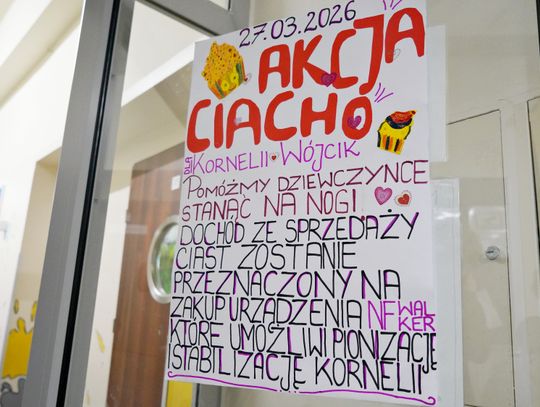 27.03.2026
AKCJA
CIACHO
DLA KORNELII WÓJCIK
POMÓŻMY DZIEWCZYNCE
STANĄĆ NA NOGI
DOCHÓD ZE SPRZEDAŻY
CIAST ZOSTANIE
PRZEZNACZONY NA
ZAKUP URZĄDZENIA NF WAL
KER
KTÓRE UMOŻLIWI PIONIZACJĘ
I STABILIZACJĘ KORNELII